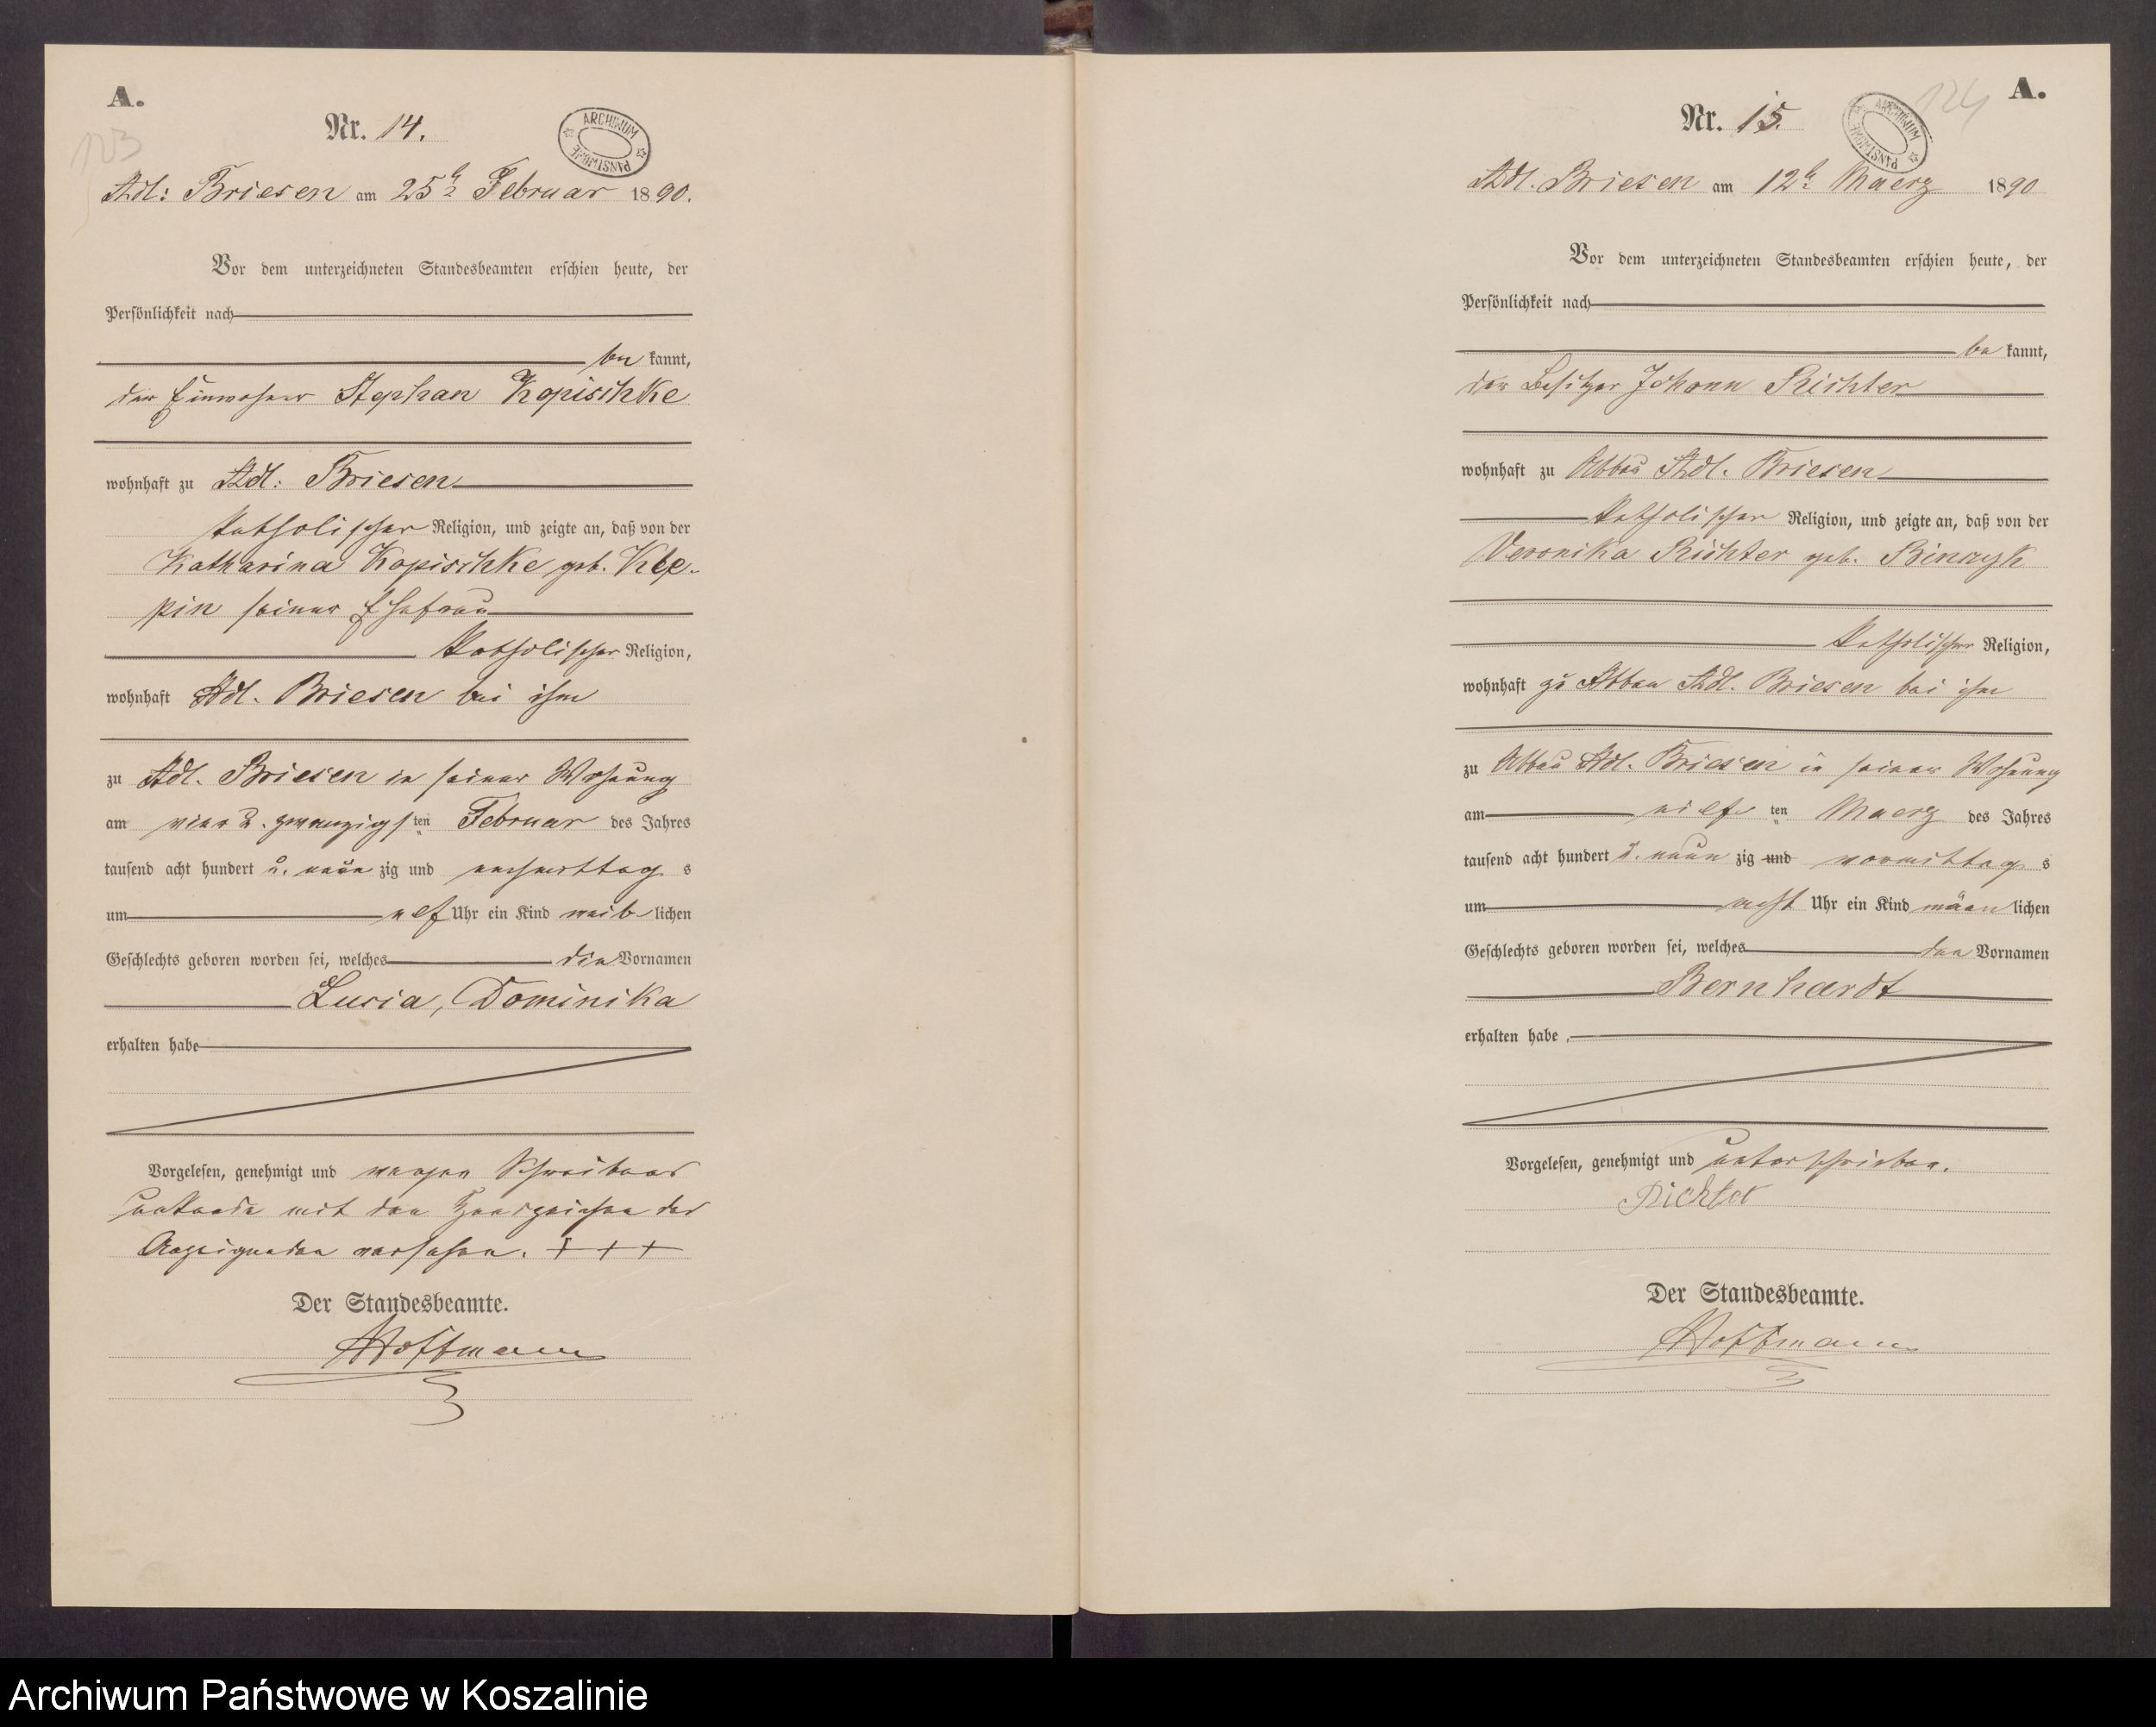 A.
123
Nr. 14.
ARCHIWUM PAŃSTWOWE
Adl: Briesen am 25t. Februar 1890.
Vor dem unterzeichneten Standesbeamten erschien heute, der
Persönlichkeit nach
be kannt,
der Einwohner Stephan Kopischke
wohnhaft zu Adl: Briesen
katholischer Religion, und zeigte an, daß von der
Katharina Kopischke geb. Klep-
pin seiner Ehefrau
katholischer Religion,
wohnhaft Adl. Briesen bei ihm
zu Adl. Briesen in seiner Wohnung
am vier u. zwanzigsten Februar des Jahres
tausend acht hundert u. neun zig und nachmittag s
um elf Uhr ein Kind weib lichen
Geschlechts geboren worden sei, welches die Vornamen
Lucia, Dominika
erhalten habe
Vorgelesen, genehmigt und wegen Schreibens
unkunde mit den Handzeichen des
Anzeigenden versehen. + + +
Der Standesbeamte.
Hoffmann
A.
124
Nr. 15.
ARCHIWUM PAŃSTWOWE
Adl. Briesen am 12t. Maerz 1890
Vor dem unterzeichneten Standesbeamten erschien heute, der
Persönlichkeit nach
be kannt,
der Besitzer Johann Richter
wohnhaft zu Abbau Adl. Briesen
katholischer Religion, und zeigte an, daß von der
Veronika Richter geb.
katholischer Religion,
wohnhaft zu Abbau Adl. Briesen bei ihm
zu Abbau Adl. Briesen in seiner Wohnung
am eilf ten Maerz des Jahres
tausend acht hundert u. neun zig und vormittag s
um acht Uhr ein Kind männ lichen
Geschlechts geboren worden sei, welches den Vornamen
Bernhardt
erhalten habe
Vorgelesen, genehmigt und unterschrieben.
Richter
Der Standesbeamte.
Hoffmann
Archiwum Państwowe w Koszalinie